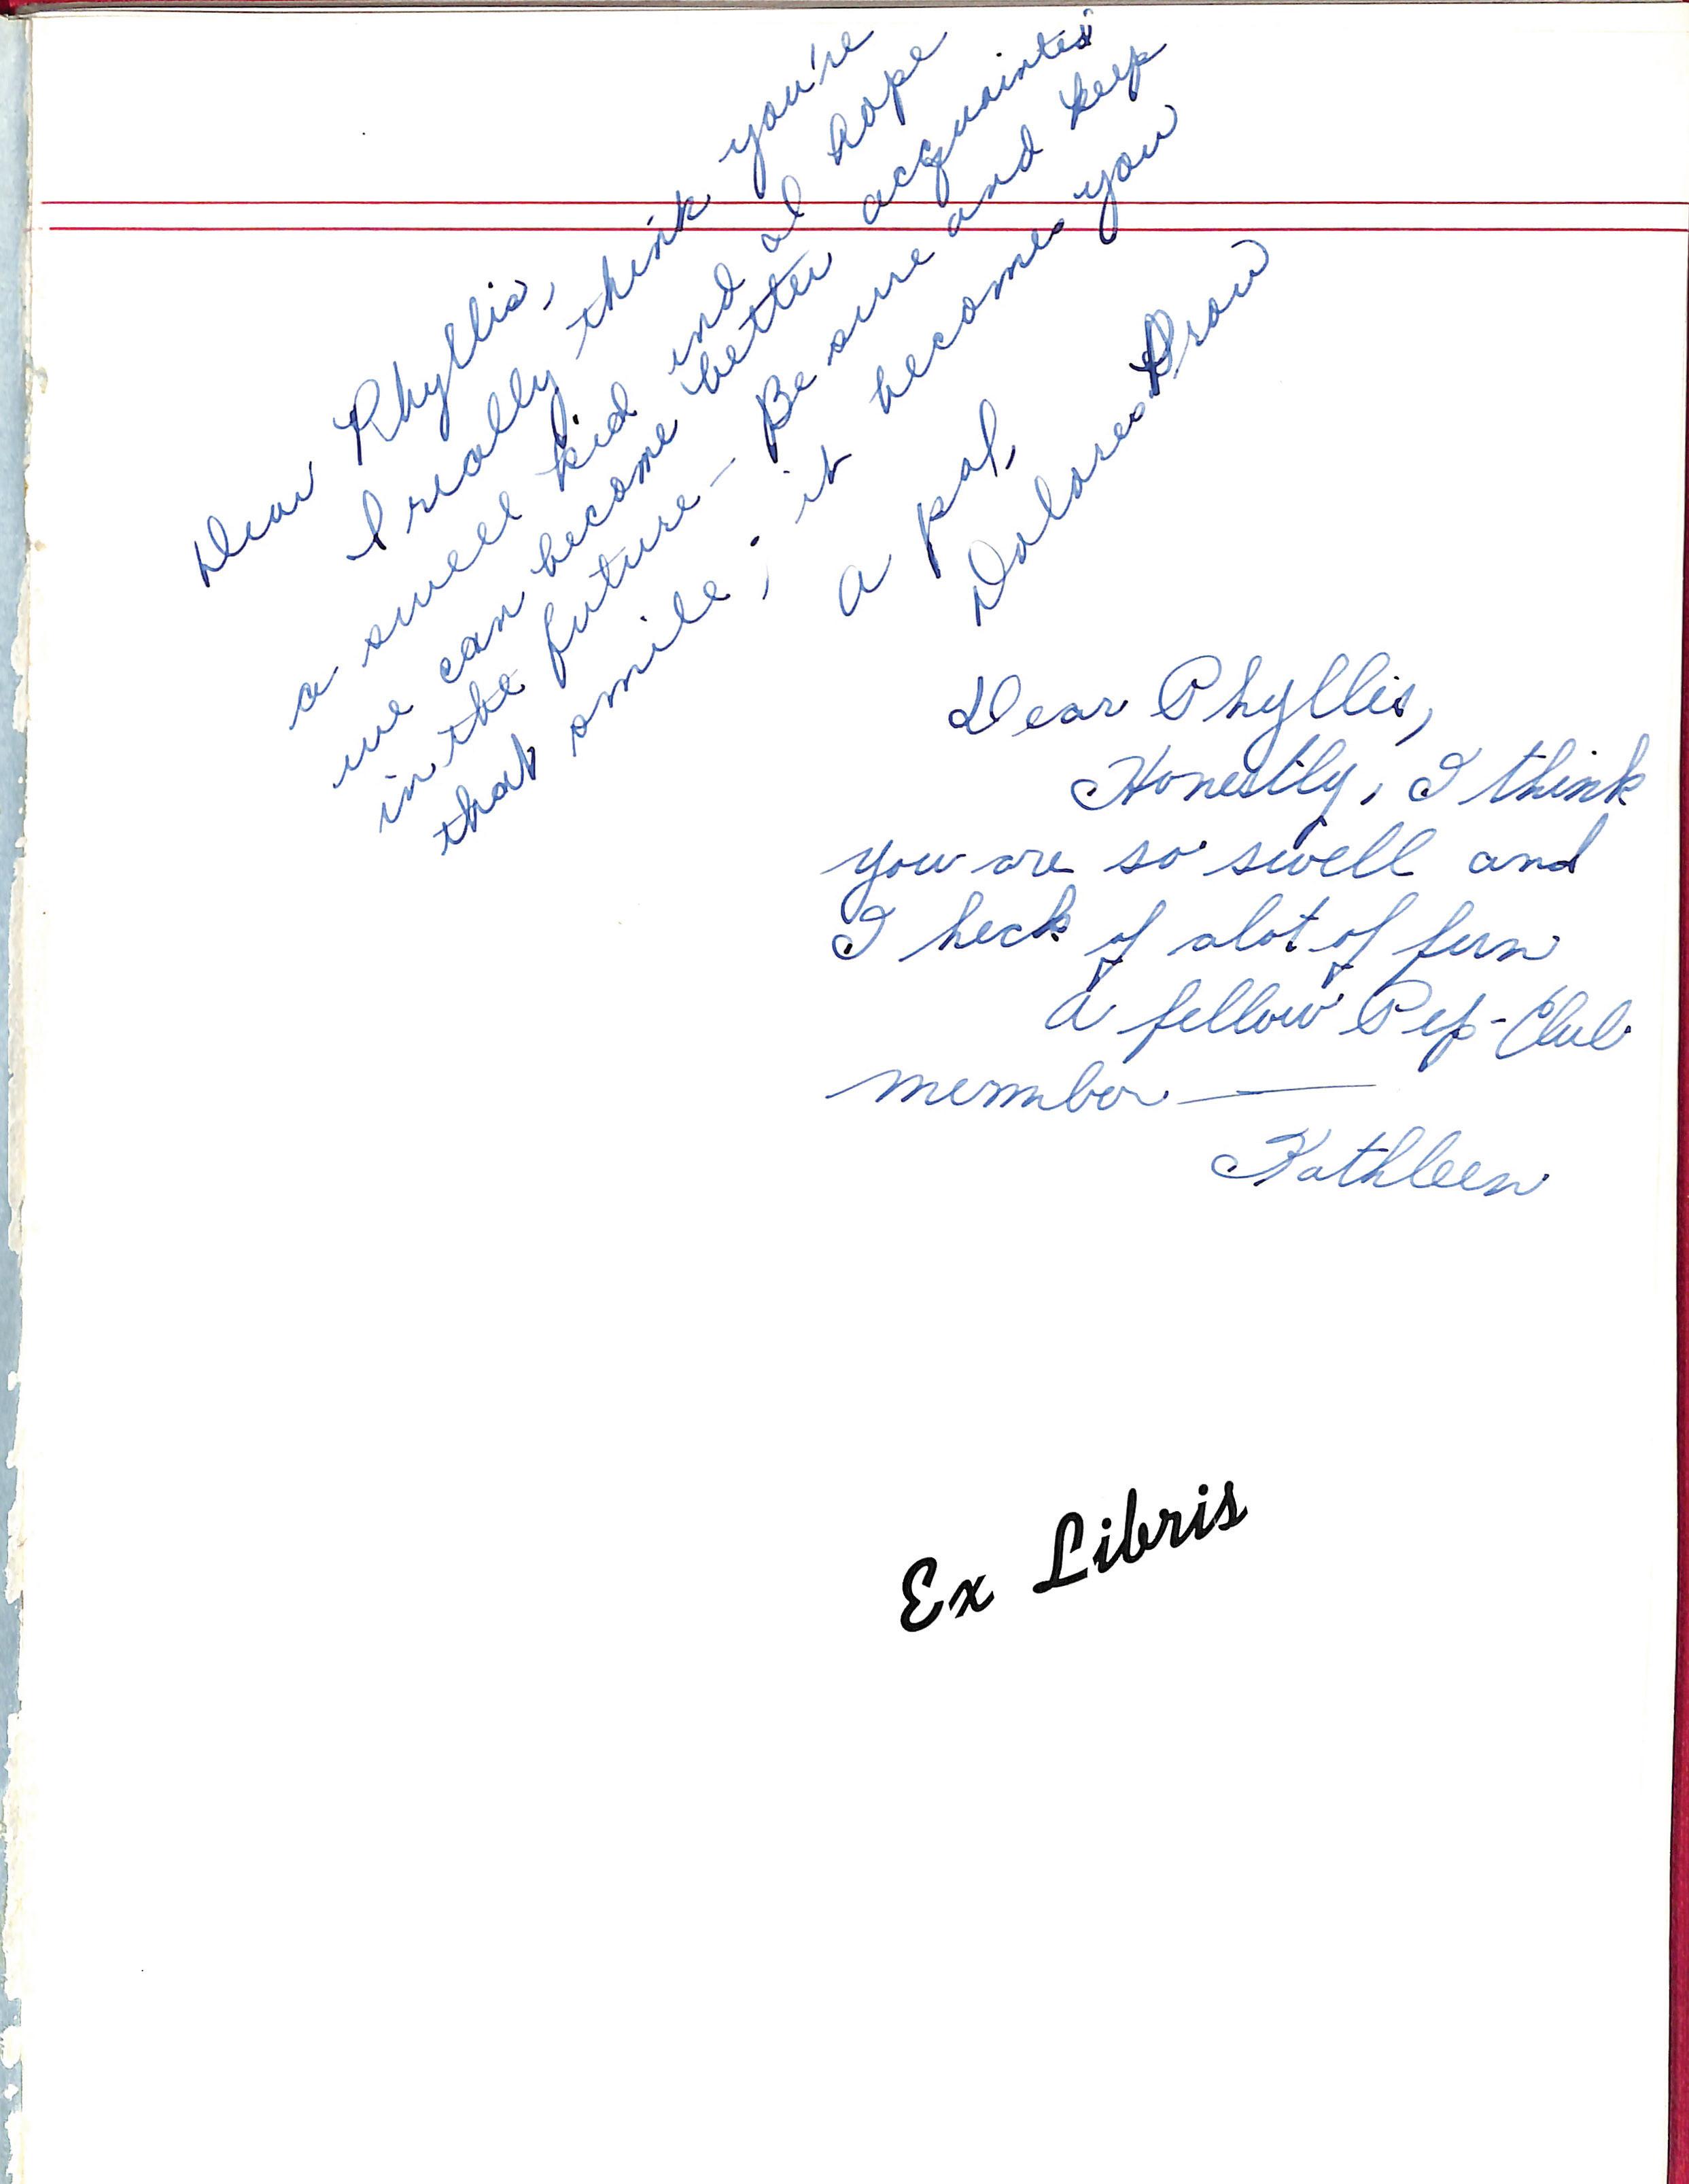 Dear Phyllis,
I really think you're
a swell kid and I hope
we can become better acquainted
in the future - Be sure and keep
that smile; it becomes you
a pal,
Dolores
Dear Phyllis,
Honestly, I think
you are so swell and
I heck of alot of fun
A fellow Pep-Club
member —
Kathleen
Ex Libris